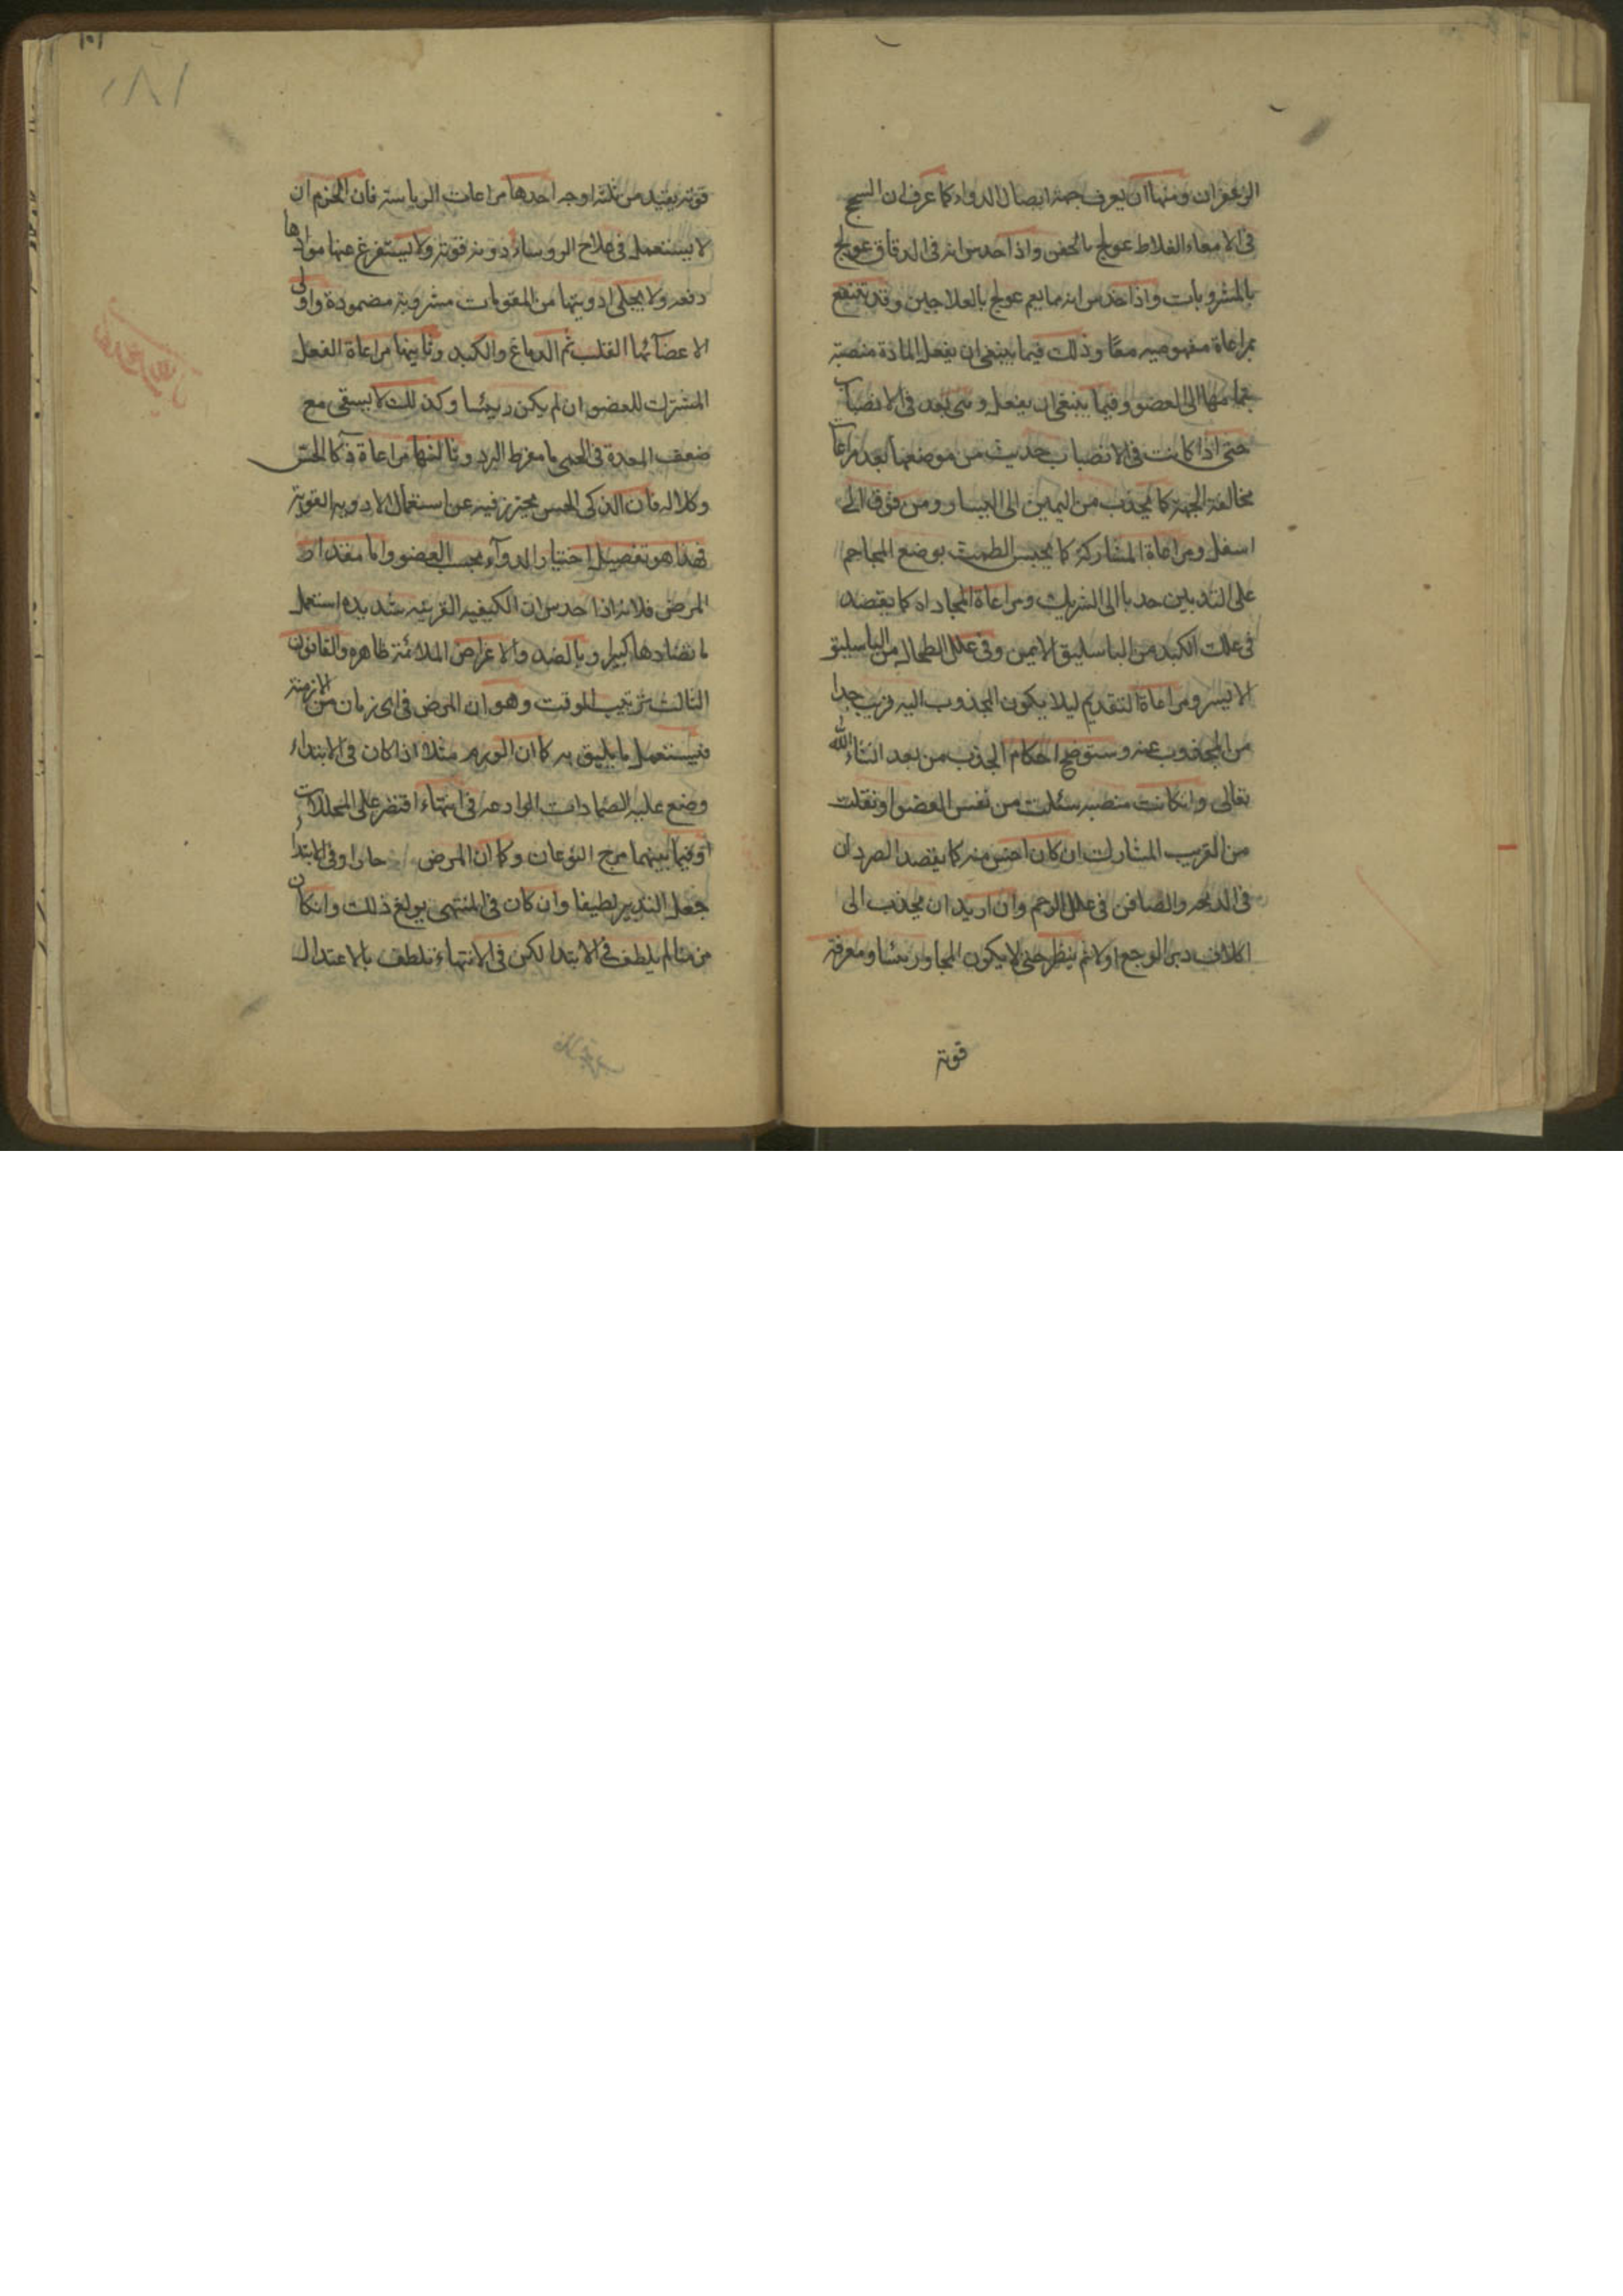 الزعفران ومنها ان يعرف جهة ايصال الدواء كما عرف ان السحج
في الامعاء الغلاظ عولج بالحقن واذا حدس انه في الدقاق عولج
بالمشروبات واذا حدس انه مما يعم عولج بالعلاجين وقد تنتفع
بمراعاة مفهوميه معا وذلك فيما ينبغي ان يفعل المادة منصبة
بتمامها الى العضو وفيما ينبغي ان يفعل وهي بعد في الانصباب
حتى اذا كانت في الانصباب جذبت من موضعها بعد مراعاة
مخالفة الجهة كما يجذب من اليمين الى اليسار ومن فوق الى
اسفل ومراعاة المشاركة كما يحبس الطمث بوضع المحاجم
على الثديين جذبا الى الشريك ومراعاة المحاذاة كما يفصد
في علل الكبد من الباسليق الايمن وفي علل الطحال من الباسليق
الايسر ومراعاة التقديم ليلا يكون المجذوب اليه قريب جدا
من المجذوب عنه وستوضح احكام الجذب من بعد انشاء الله
تعالى وان كانت منصبه من نفس العضو او نقلت
من القريب المشارك ان كان منه كما يفصد الصردان
في الذبحه والصافن في علل الرحم وان اريد ان يجذب الى
الوجع اولا ثم ينظر حتى لا يكون المجاور رئيسا ومعرفة
قوته
قوته يفيد من ثلثة اوجه احدها مراعات الرياسة فان الحزم ان
لا يستعمل في علاج الروساء دوية قوية ولا يستفرغ عنها موادها
دفعه ولا يخلى ادويتها من المقومات مشروبة مضمودة واولى
الاعضاء بها القلب ثم الدماغ والكبد وثانيها مراعاة الفعل
المشترك للعضو ان لم يكن رئيسا وكذلك لا يسقى مع
ضعف المعدة في الحمى ما مفرط البرد وثالثها مراعاة ذكاء الحس
وكلاله فان الذكى الحس يحترز فيه عن استعمال الادويه القوية
فهذا هو تفصيل اختيار الدواء بحسب العضو واما مقدار
المرض فلانه اذا حدس ان الكيفيه الغريبه شديده استعمل
ما تضادها كبيرا وبالضد والاعراض الملائمة ظاهره والقانون
الثالث ترتيب الوقت وهو ان المرض في اى زمان من الازمنة
فيستعمل ما يليق به كما ان الورم مثلا اذا كان في الابتداء
وضع عليه الضمادات الرادعه في انتهاء اقتصر على المحللات
او فيما بينهما مزج النوعان وكما ان المرض حارا وفي الابتداء
جعل التدبير لطيفا وان كان في المنتهى بولغ ذلك وان كان
مزمنا لم يلطف في الابتدا لكن في الانتهاء تلطف بالاعتدال